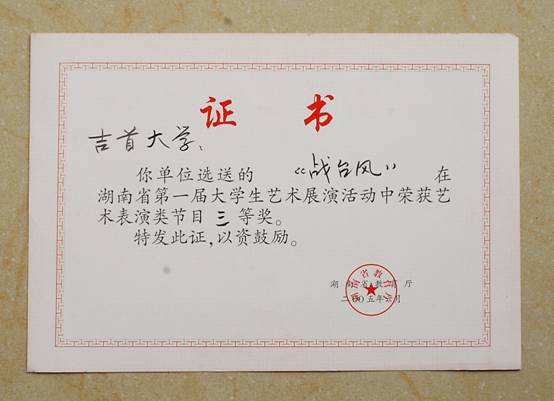 证 书
吉首大学、
你单位选送的 “战台风” 在
湖南省第一届大学生艺术展演活动中荣获艺
术表演类节目三等奖。
特发此证,以资鼓励。
湖南省教育厅
二〇〇五年 月